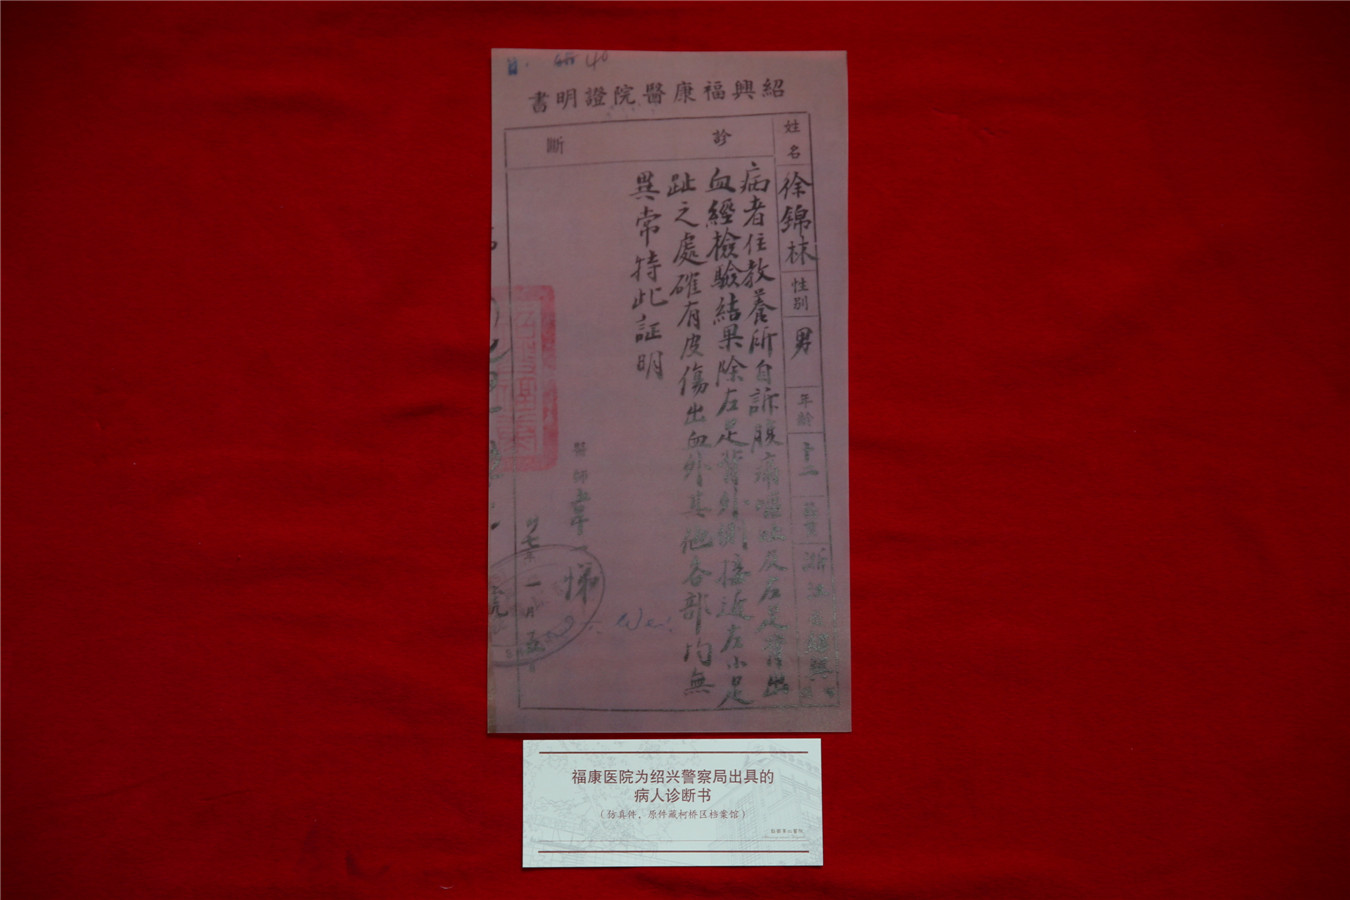 紹興福康醫院證明書
姓名 徐錦袜 性別 男 年齡
診斷
病者住教養所自訴腹痛嘔吐及左足背出
血經檢驗結果除左足背外側接近左小足
趾之處確有皮傷出血外其他各部均無
異常特此証明
醫師
一月五
福康医院为绍兴警察局出具的
病人诊断书
(仿真件,原件藏柯桥区档案馆)